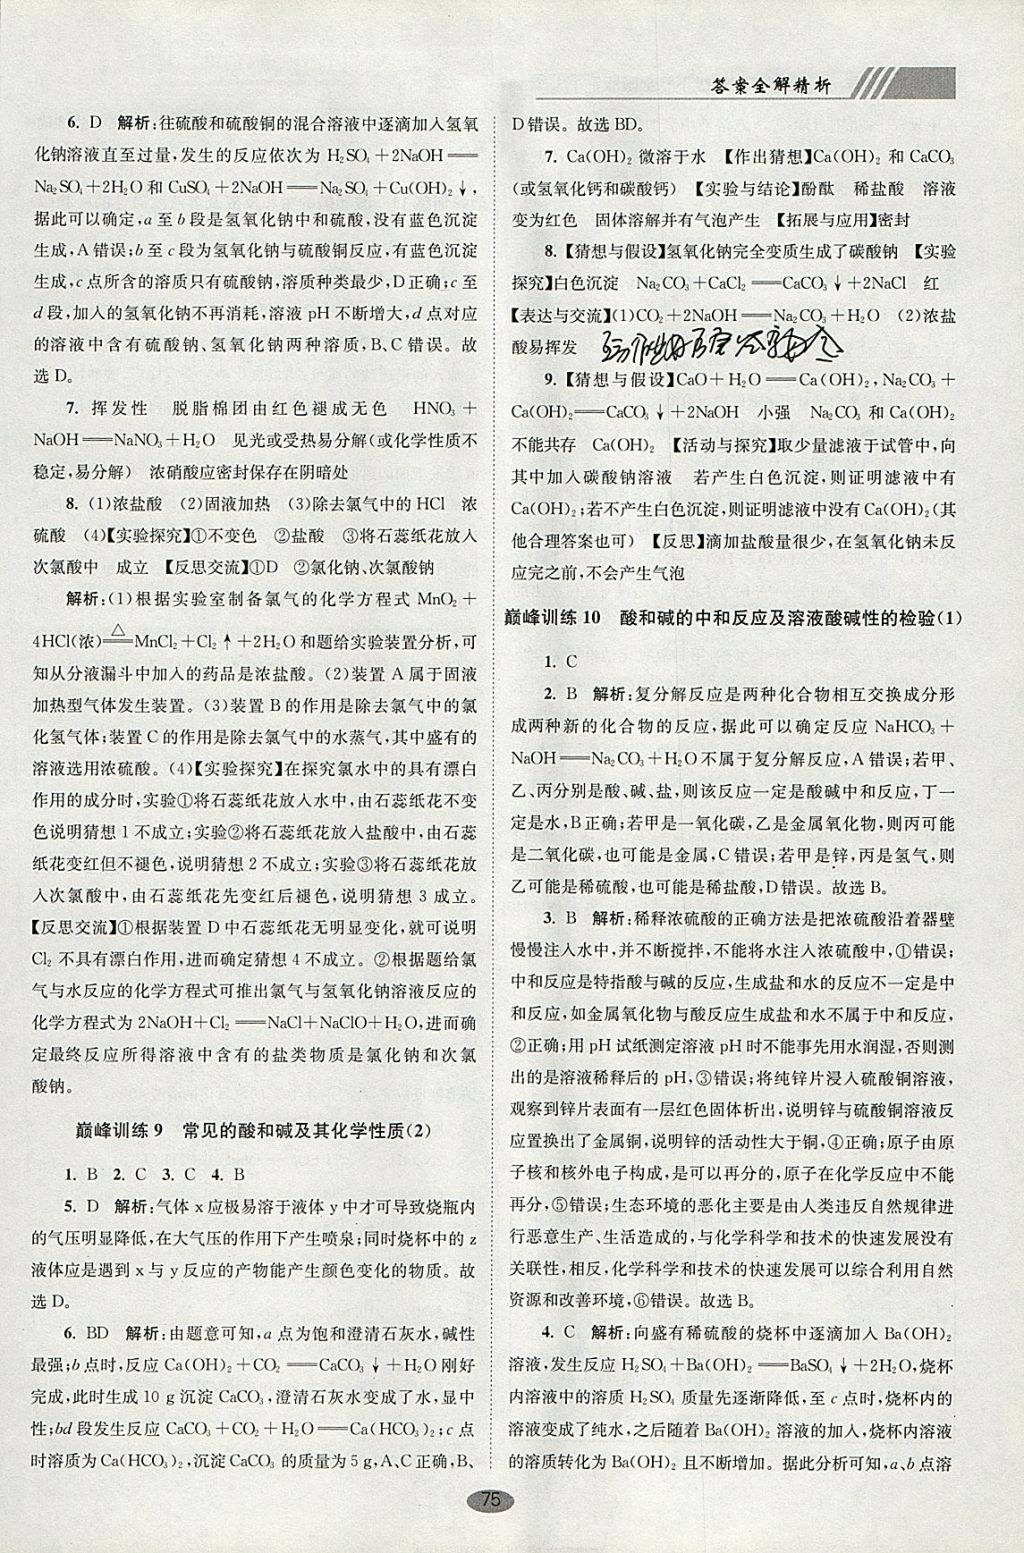 答案全解精析
6. D 解析:往硫酸和硫酸铜的混合溶液中逐滴加入氢氧
化钠溶液直至过量,发生的反应依次为 H₂SO₄+2NaOH══
Na₂SO₄+2H₂O 和 CuSO₄+2NaOH══Na₂SO₄+Cu(OH)₂↓,
据此可以确定,a 至 b 段是氢氧化钠中和硫酸,没有蓝色沉淀
生成,A 错误;b 至 c 段为氢氧化钠与硫酸铜反应,有蓝色沉淀
生成,c 点所含的溶质只有硫酸钠,溶质种类最少,D 正确;c 至
d 段,加入的氢氧化钠不再消耗,溶液 pH 不断增大,d 点对应
的溶液中含有硫酸钠、氢氧化钠两种溶质,B、C 错误。故
选 D。
7. 挥发性 脱脂棉团由红色褪成无色 HNO₃+
NaOH══NaNO₃+H₂O 见光或受热易分解(或化学性质不
稳定,易分解) 浓硝酸应密封保存在阴暗处
8. (1)浓盐酸 (2)固液加热 (3)除去氯气中的 HCl 浓
硫酸 (4)【实验探究】①不变色 ②盐酸 ③将石蕊纸花放入
次氯酸中 成立 【反思交流】①D ②氯化钠、次氯酸钠
解析:(1)根据实验室制备氯气的化学方程式 MnO₂+
4HCl(浓)══△MnCl₂+Cl₂↑+2H₂O 和题给实验装置分析,可
知从分液漏斗中加入的药品是浓盐酸。(2)装置 A 属于固液
加热型气体发生装置。(3)装置 B 的作用是除去氯气中的氯
化氢气体;装置 C 的作用是除去氯气中的水蒸气,其中盛有的
溶液选用浓硫酸。(4)【实验探究】在探究氯水中的具有漂白
作用的成分时,实验①将石蕊纸花放入水中,由石蕊纸花不变
色说明猜想 1 不成立;实验②将石蕊纸花放入盐酸中,由石蕊
纸花变红但不褪色,说明猜想 2 不成立;实验③将石蕊纸花放
入次氯酸中,由石蕊纸花先变红后褪色,说明猜想 3 成立。
【反思交流】①根据装置 D 中石蕊纸花无明显变化,就可说明
Cl₂ 不具有漂白作用,进而确定猜想 4 不成立。②根据题给氯
气与水反应的化学方程式可推出氯气与氢氧化钠溶液反应的
化学方程式为 2NaOH+Cl₂══NaCl+NaClO+H₂O,进而确
定最终反应所得溶液中含有的盐类物质是氯化钠和次氯
酸钠。
巅峰训练 9 常见的酸和碱及其化学性质(2)
1. B 2. C 3. C 4. B
5. D 解析:气体 x 应极易溶于液体 y 中才可导致烧瓶内
的气压明显降低,在大气压的作用下产生喷泉;同时烧杯中的 z
液体应是遇到 x 与 y 反应的产物能产生颜色变化的物质。故
选 D。
6. BD 解析:由题意可知,a 点为饱和澄清石灰水,碱性
最强;b 点时,反应 Ca(OH)₂+CO₂══CaCO₃↓+H₂O 刚好
完成,此时生成 10 g 沉淀 CaCO₃,澄清石灰水变成了水,显中
性;bd 段发生反应 CaCO₃+CO₂+H₂O══Ca(HCO₃)₂;c 点
时溶质为 Ca(HCO₃)₂,沉淀 CaCO₃ 的质量为 5 g,A、C 正确,B、
D 错误。故选 BD。
7. Ca(OH)₂ 微溶于水 【作出猜想】Ca(OH)₂ 和 CaCO₃
(或氢氧化钙和碳酸钙) 【实验与结论】酚酞 稀盐酸 溶液
变为红色 固体溶解并有气泡产生 【拓展与应用】密封
8. 【猜想与假设】氢氧化钠完全变质生成了碳酸钠 【实验
探究】白色沉淀 Na₂CO₃+CaCl₂══CaCO₃↓+2NaCl 红
【表达与交流】(1)CO₂+2NaOH══Na₂CO₃+H₂O (2)浓盐
酸易挥发
9. 【猜想与假设】CaO+H₂O══Ca(OH)₂,Na₂CO₃+
Ca(OH)₂══CaCO₃↓+2NaOH 小强 Na₂CO₃ 和 Ca(OH)₂
不能共存 Ca(OH)₂ 【活动与探究】取少量滤液于试管中,向
其中加入碳酸钠溶液 若产生白色沉淀,则证明滤液中含有
Ca(OH)₂;若不产生白色沉淀,则证明滤液中没有 Ca(OH)₂(其
他合理答案也可) 【反思】滴加盐酸量很少,在氢氧化钠未反
应完之前,不会产生气泡
巅峰训练 10 酸和碱的中和反应及溶液酸碱性的检验(1)
1. C
2. B 解析:复分解反应是两种化合物相互交换成分形
成两种新的化合物的反应,据此可以确定反应 NaHCO₃+
NaOH══Na₂CO₃+H₂O 不属于复分解反应,A 错误;若甲、
乙、丙分别是酸、碱、盐,则该反应一定是酸碱中和反应,丁一
定是水,B 正确;若甲是一氧化碳,乙是金属氧化物,则丙可能
是二氧化碳,也可能是金属,C 错误;若甲是锌,丙是氢气,则
乙可能是稀硫酸,也可能是稀盐酸,D 错误。故选 B。
3. B 解析:稀释浓硫酸的正确方法是把浓硫酸沿着器壁
慢慢注入水中,并不断搅拌,不能将水注入浓硫酸中,①错误;
中和反应是特指酸与碱的反应,生成盐和水的反应不一定是中
和反应,如金属氧化物与酸反应生成盐和水不属于中和反应,
②正确;用 pH 试纸测定溶液 pH 时不能事先用水润湿,否则测
出的是溶液稀释后的 pH,③错误;将纯锌片浸入硫酸铜溶液,
观察到锌片表面有一层红色固体析出,说明锌与硫酸铜溶液反
应置换出了金属铜,说明锌的活动性大于铜,④正确;原子由原
子核和核外电子构成,是可以再分的,原子在化学反应中不能
再分,⑤错误;生态环境的恶化主要是由人类违反自然规律进
行恶意生产、生活造成的,与化学科学和技术的快速发展没有
关联性,相反,化学科学和技术的快速发展可以综合利用自然
资源和改善环境,⑥错误。故选 B。
4. C 解析:向盛有稀硫酸的烧杯中逐滴加入 Ba(OH)₂
溶液,发生反应 H₂SO₄+Ba(OH)₂══BaSO₄↓+2H₂O,烧杯
内溶液中的溶质 H₂SO₄ 质量先逐渐降低,至 c 点时,烧杯内的
溶液变成了纯水,之后随着 Ba(OH)₂ 溶液的加入,烧杯内溶液
的溶质转化为 Ba(OH)₂ 且不断增加。据此分析可知,a、b 点溶
75